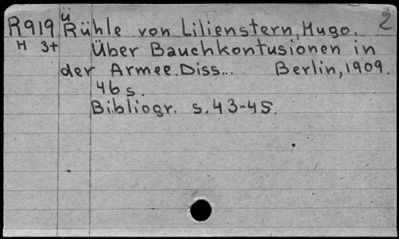 R919ü Rühle von Lilienstern, Hugo. 2
H 3+ Über Bauchkontusionen in
der Armee. Diss... Berlin, 1909.
46 s.
Bibliogr. s. 43-45.